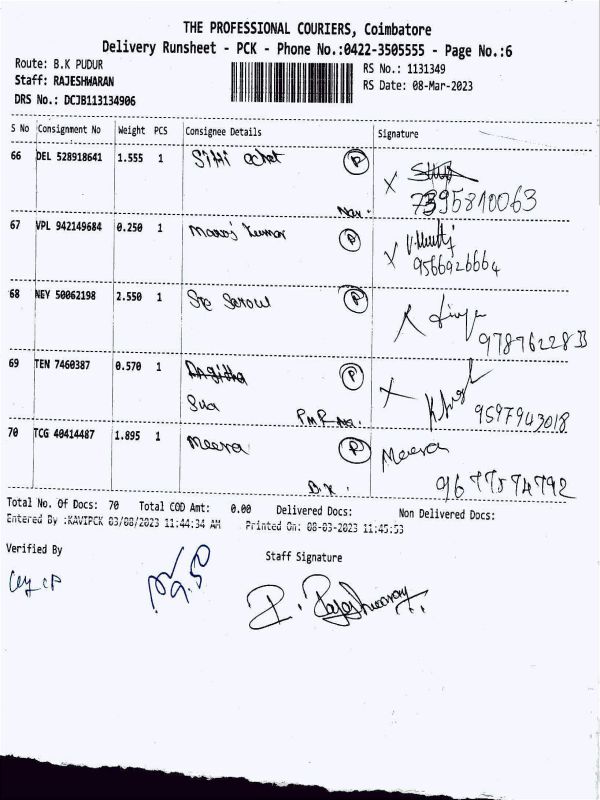 THE PROFESSIONAL COURIERS, Coimbatore
Delivery Runsheet - PCK - Phone No.:0422-3505555 - Page No.:6
Route: B.K PUDUR
RS No.: 1131349
Staff: RAJESHWARAN
RS Date: 08-Mar-2023
DRS No.: DCJB113134906
S No Consignment No Weight PCS Consignee Details Signature
66 DEL 528918641 1.555 1 P
7395810063
67 VPL 942149684 0.250 1 Manoj Kumar P
9566926664
68 NEY 50062198 2.550 1 P
69 TEN 7460387 0.570 1 P
9597943018
70 TCG 40414487 1.895 1 Meera P Meera
9677574792
Total No. Of Docs: 70 Total COD Amt: 0.00 Delivered Docs: Non Delivered Docs:
Entered By :KAVIPCK 03/08/2023 11:44:34 AM Printed On: 08-03-2023 11:45:53
Verified By Staff Signature
P. Rajeshwaran